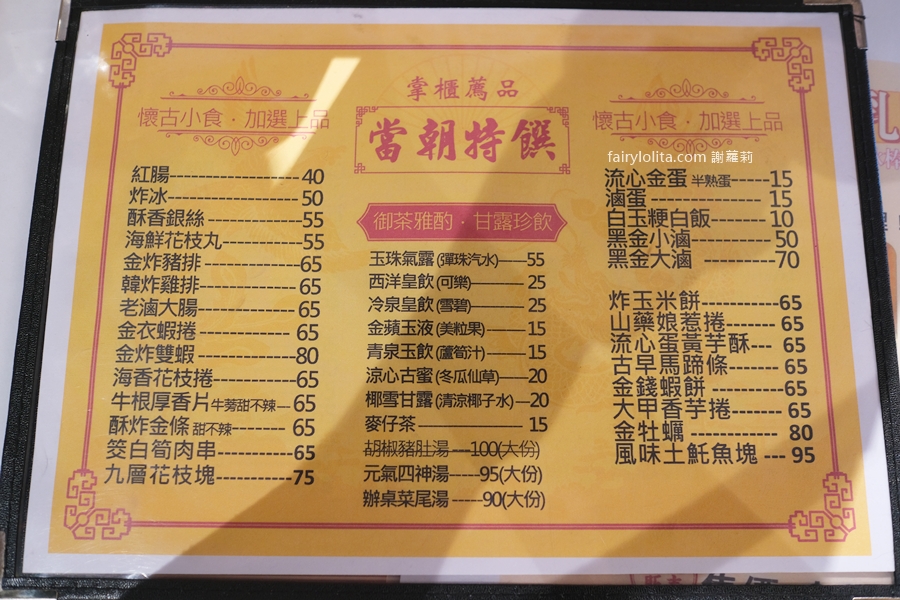 懷古小食·加選上品
紅腸-----40
炸冰-----50
酥香銀絲-----55
海鮮花枝丸-----55
金炸豬排-----65
韓炸雞排-----65
老滷大腸-----65
金衣蝦捲-----65
金炸雙蝦-----80
海香花枝捲-----65
牛根厚香片 牛蒡甜不辣-----65
酥炸金條 甜不辣-----65
筊白筍肉串-----65
九層花枝塊-----75
掌櫃薦品
當朝特饌
御茶雅酌·甘露珍飲
玉珠氣露(彈珠汽水)-----55
西洋皇飲(可樂)-----25
冷泉皇飲(雪碧)-----25
金蘋玉液(美粒果)-----15
青泉玉飲(蘆筍汁)-----15
涼心古蜜(冬瓜仙草)-----20
椰雪甘露(清涼椰子水)-----20
麥仔茶-----15
胡椒豬肚湯-----100(大份)
元氣四神湯-----95(大份)
辦桌菜尾湯-----90(大份)
懷古小食·加選上品
fairylolita.com 謝蘿莉
流心金蛋 半熟蛋-----15
滷蛋-----15
白玉粳白飯-----10
黑金小滷-----50
黑金大滷-----70
炸玉米餅-----65
山藥娘惹捲-----65
流心蛋黃芋酥---65
古早馬蹄條-----65
金錢蝦餅-----65
大甲香芋捲-----65
金牡蠣-----80
風味土魠魚塊---95